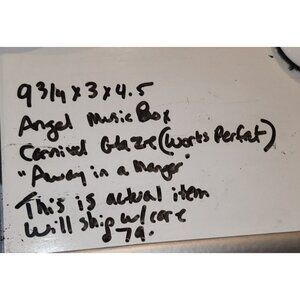 9 3/4 x 3 x 4.5
Angel Music Box
Carnival Glaze (Works Perfect)
"Away in a Manger"
This is actual item
Will ship w/ care
$79.